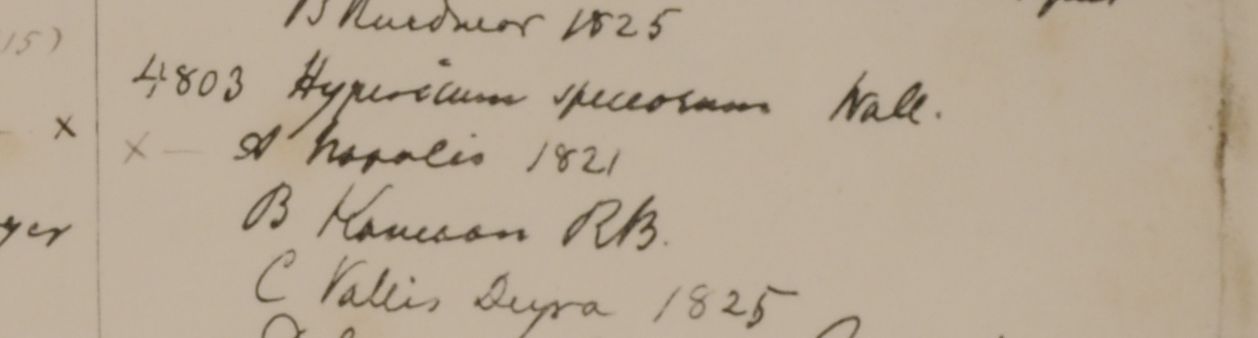 B Hurdwar 1825
15)
4803 Hypericum speciosum Wall.
x
x — A Napalis 1821
B Kamaon RB.
yer
C Vallis Deyra 1825